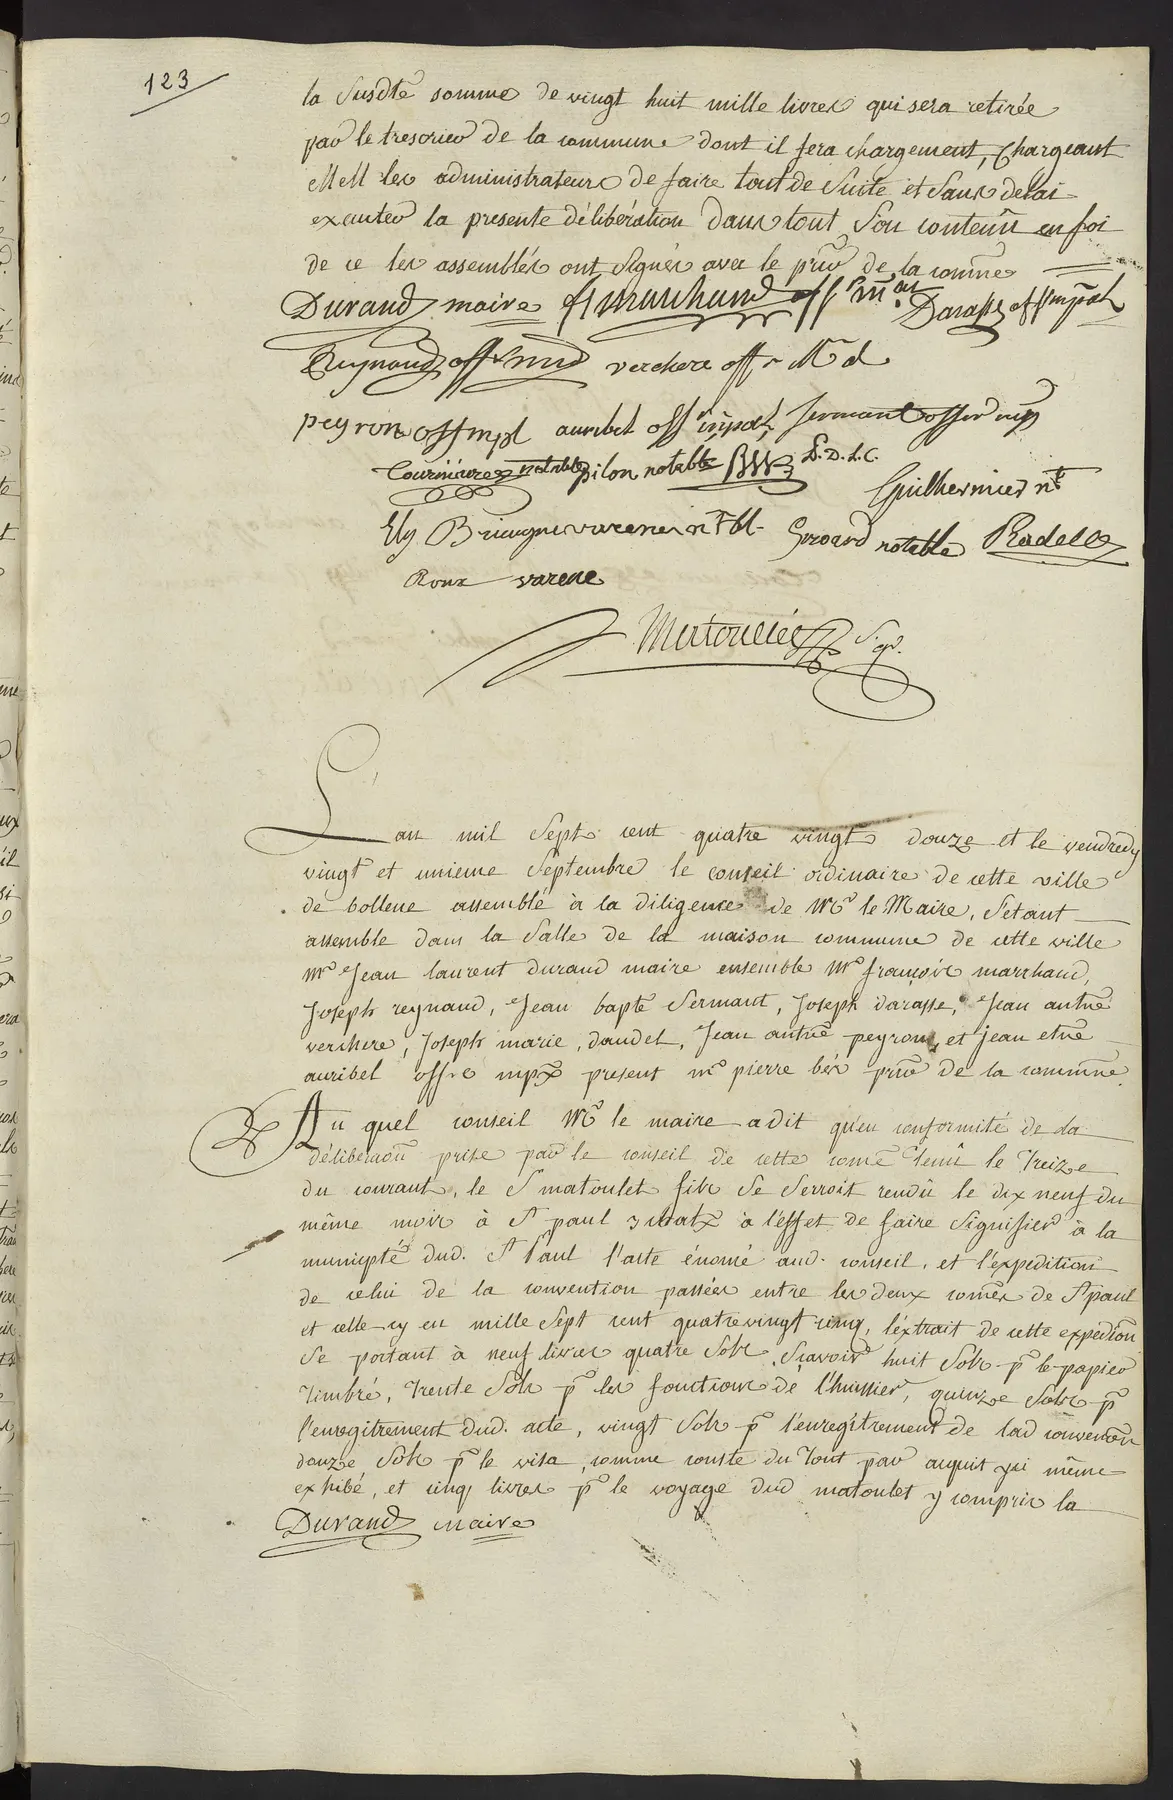 123
la susdte somme de vingt huit mille livres qui sera retirée
par le tresorier de la commune dont il fera chargement, Chargeant
MM les administrateurs de faire tout de suite et sans delai
executer la presente délibération dans tout son contenû en foi
de ce les assemblés ont signés avec le prur de la comne
Durand maire f marchand off mal Darasse off mpal
Reynaud off mpl verchere offr Mal
peyron off mpl auribel off mpal sermant offr mp
notable pilon notable L.D.L.C.
Guilhermier nt
Ely Bricugne varene ntbl Girard notable Radel
Roux varene
Mertoulié Sgr.
L'an mil sept cent quatre vingt douze et le vendredy
vingt et unieme septembre le conseil ordinaire de cette ville
de bollene assemblé à la diligence de Mr le Maire, s'etant
assemble dans la salle de la maison commune de cette ville
Mr Jean laurent durand maire ensemble Mr françois marchand,
Joseph reynaud, Jean bapte Sermant, Joseph darasse, Jean antne
verchere, Joseph marie, daudet, Jean antne peyron, et jean etne
auribel offrs mpx present mr pierre bés prur de la commne
Au quel conseil Mr le maire a dit qu'en conformité de la
délibéraon prise par le conseil de cette come tenû le treize
du courant, le Sr matoulet fils se serroit rendû le dix neuf du
même mois à St paul 3 chatx à l'effet de faire signifier à la
municipté dud. St Paul l'acte énomé aud. conseil, et l'expedition
de celui de la convention passées entre les deux comes de St paul
et celle-cy en mille sept cent quatre vingt cinq, l'éxtrait de cette expedion
se portant à neuf livres quatre sols, sçavoir huit sols pr le papier
timbré, trente sols pr les fonctions de l'huissier, quinze sols pr
l'enregitrement dud. acte, vingt sols pr l'enregitrement de lad convenon
douze sols pr le visa, comme conste du tout par acquit ici même
exhibé, et cinq livres pr le voyage dud matoulet y compris la
Durand maire